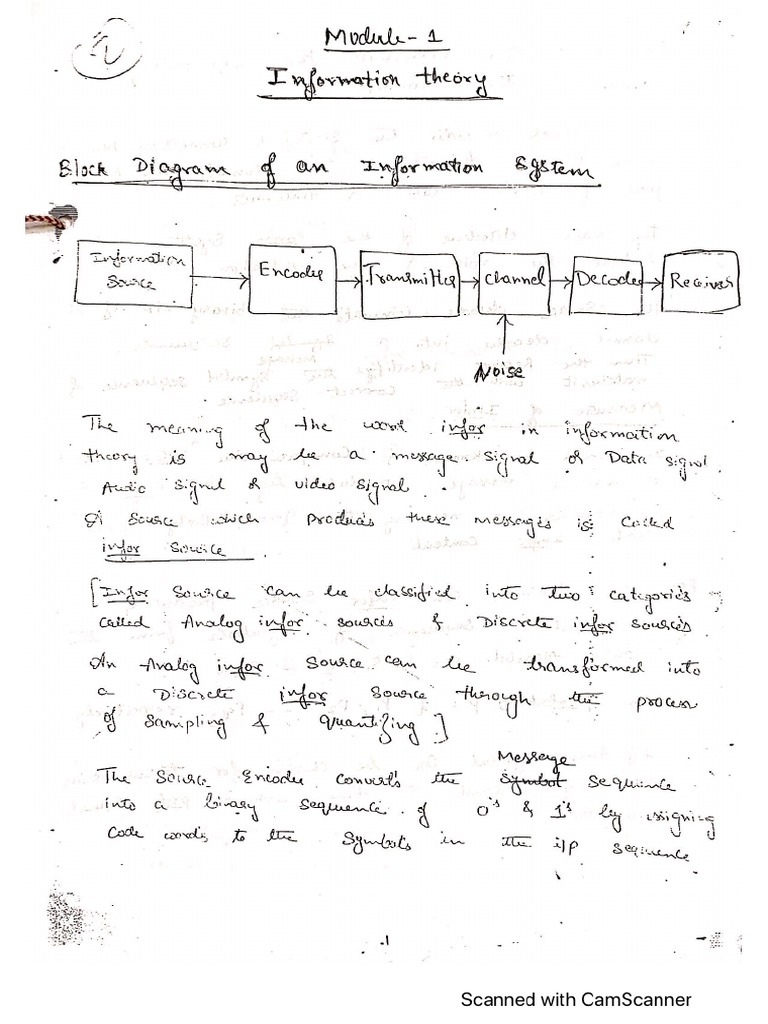 Module - 1
Information theory
Block Diagram of an Information System
Information
Source
Encoder
Transmitter
Channel
Decoder
Receiver
Noise
The meaning of the word infor in information
theory is may be a message signal or Data signal
Audio signal or video signal.
A source which produces these messages is called
infor source
[Infor source can be classified into two categories
called Analog infor sources & Discrete infor sources
An Analog infor source can be transformed into
a Discrete infor source through the process
of sampling & quantizing]
Message
The source Encoder convert's the symbol sequence
into a binary sequence of 0's & 1's by assigning
Code words to the symbols in the i/p sequence
-1
Scanned with CamScanner